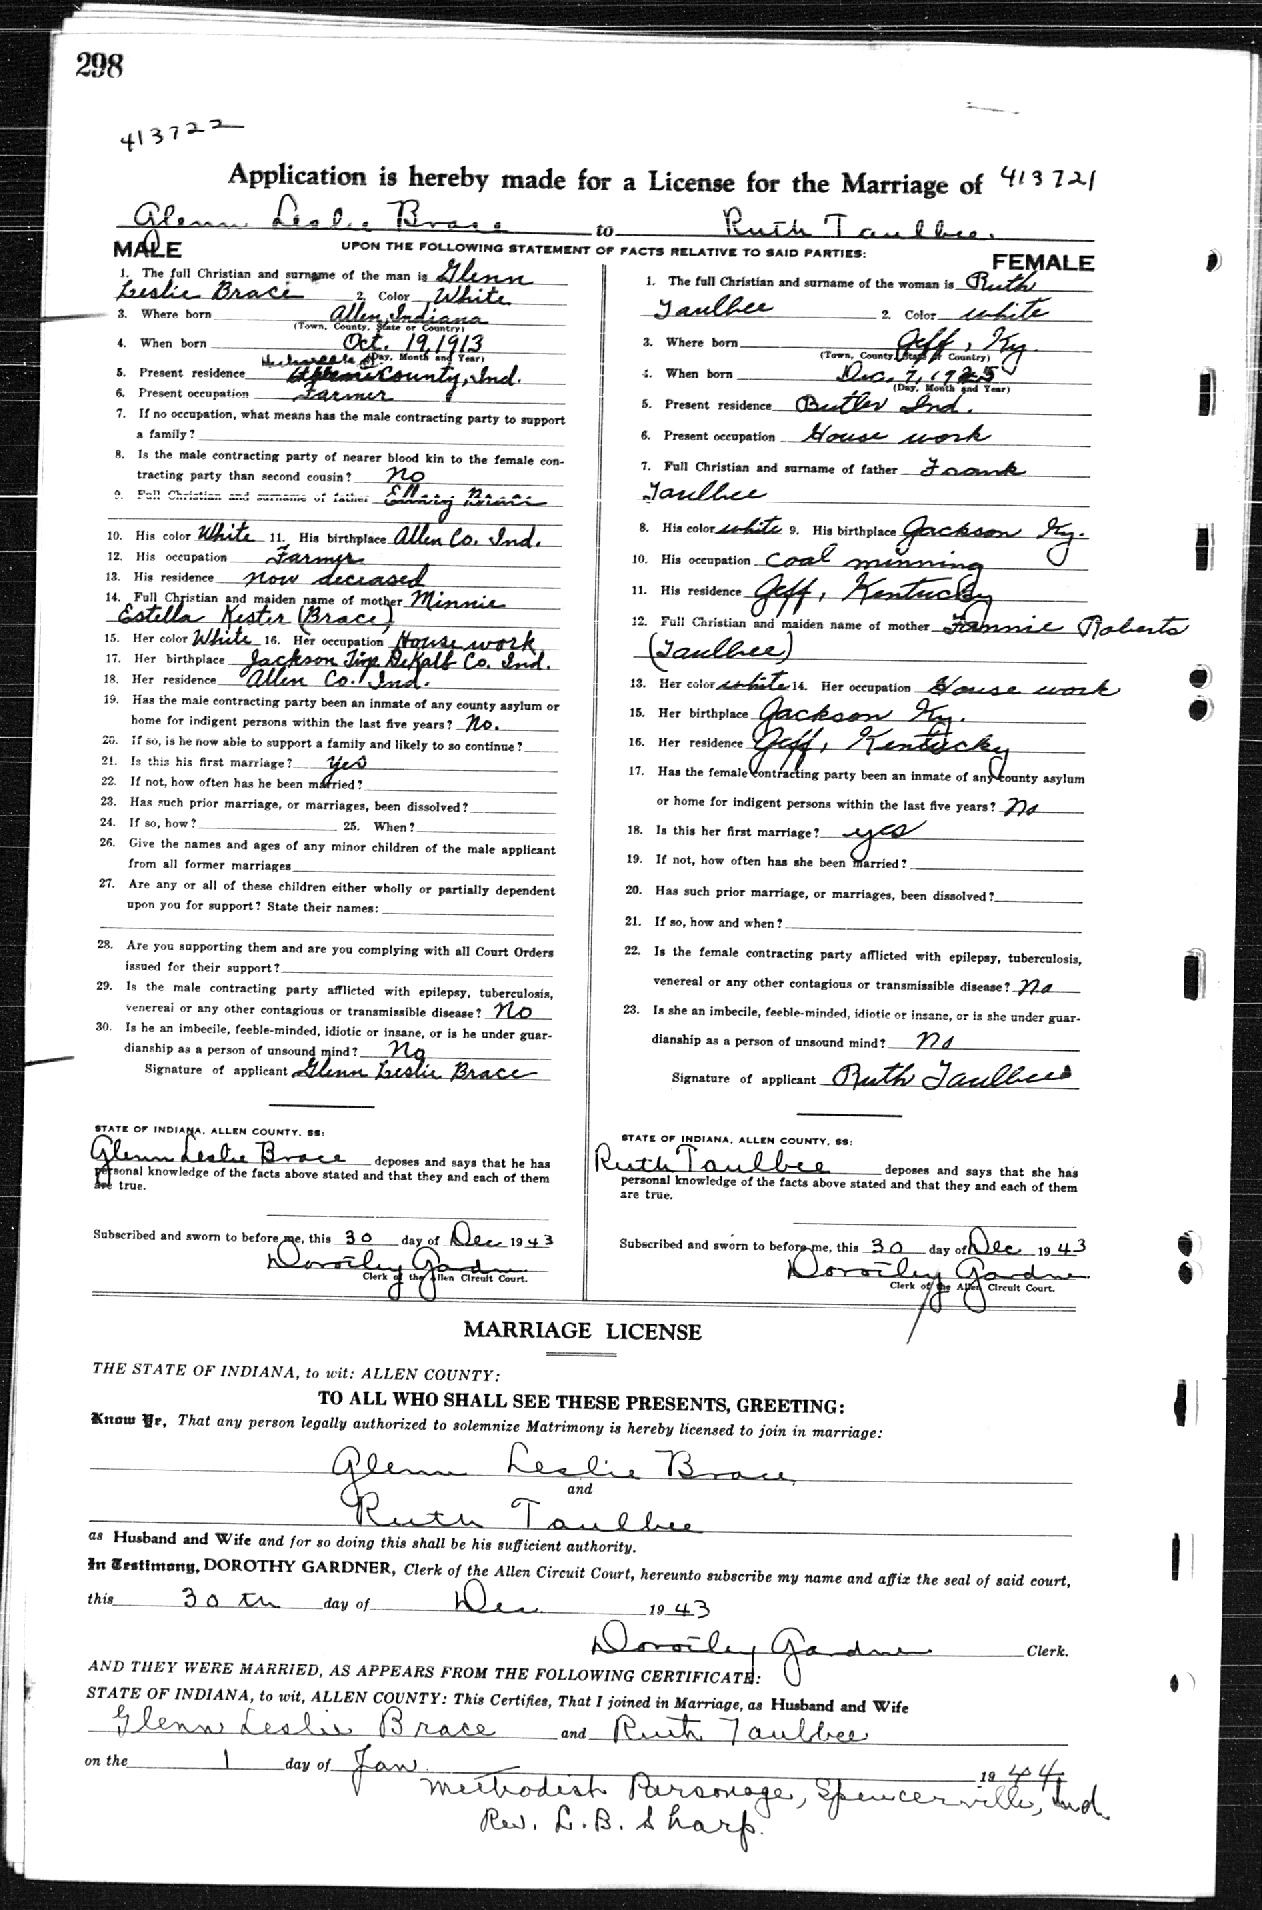 298
413722
Application is hereby made for a License for the Marriage of 413721
Glenn Leslie Brace to Ruth Taulbee.
MALE
UPON THE FOLLOWING STATEMENT OF FACTS RELATIVE TO SAID PARTIES:
FEMALE
1. The full Christian and surname of the man is Glenn
Leslie Brace 2. Color White
3. Where born Allen, Indiana
(Town, County, State or Country)
4. When born Oct. 19, 1913
(Day, Month and Year)
5. Present residence County, Ind.
6. Present occupation Farmer
7. If no occupation, what means has the male contracting party to support
a family?
8. Is the male contracting party of nearer blood kin to the female con-
tracting party than second cousin? No
9. Full Christian and surname of father Brace
10. His color White 11. His birthplace Allen Co. Ind.
12. His occupation Farmer
13. His residence now deceased
14. Full Christian and maiden name of mother Minnie
Estella Kester (Brace)
15. Her color White 16. Her occupation House work
17. Her birthplace Jackson Twp DeKalb Co. Ind.
18. Her residence Allen Co. Ind.
19. Has the male contracting party been an inmate of any county asylum or
home for indigent persons within the last five years? No.
20. If so, is he now able to support a family and likely to so continue?
21. Is this his first marriage? Yes
22. If not, how often has he been married?
23. Has such prior marriage, or marriages, been dissolved?
24. If so, how? 25. When?
26. Give the names and ages of any minor children of the male applicant
from all former marriages
27. Are any or all of these children either wholly or partially dependent
upon you for support? State their names:
28. Are you supporting them and are you complying with all Court Orders
issued for their support?
29. Is the male contracting party afflicted with epilepsy, tuberculosis,
venereal or any other contagious or transmissible disease? No
30. Is he an imbecile, feeble-minded, idiotic or insane, or is he under guar-
dianship as a person of unsound mind? No
Signature of applicant Glenn Leslie Brace
STATE OF INDIANA, ALLEN COUNTY, SS:
Glenn Leslie Brace deposes and says that he has
personal knowledge of the facts above stated and that they and each of them
are true.
Subscribed and sworn to before me, this 30 day of Dec 1943
Dorothy Gardner
Clerk of the Allen Circuit Court.
1. The full Christian and surname of the woman is Ruth
Taulbee 2. Color white
3. Where born Jeff, Ky.
(Town, County, State or Country)
4. When born Dec. 7, 1925
(Day, Month and Year)
5. Present residence Butler Ind.
6. Present occupation House work
7. Full Christian and surname of father Frank
Taulbee
8. His color white 9. His birthplace Jackson Ky.
10. His occupation coal minning
11. His residence Jeff, Kentucky
12. Full Christian and maiden name of mother Fannie Roberts
(Taulbee)
13. Her color white 14. Her occupation House work
15. Her birthplace Jackson Ky.
16. Her residence Jeff, Kentucky
17. Has the female contracting party been an inmate of any county asylum
or home for indigent persons within the last five years? No
18. Is this her first marriage? yes
19. If not, how often has she been married?
20. Has such prior marriage, or marriages, been dissolved?
21. If so, how and when?
22. Is the female contracting party afflicted with epilepsy, tuberculosis,
venereal or any other contagious or transmissible disease? No
23. Is she an imbecile, feeble-minded, idiotic or insane, or is she under guar-
dianship as a person of unsound mind? No
Signature of applicant Ruth Taulbee
STATE OF INDIANA, ALLEN COUNTY, SS:
Ruth Taulbee deposes and says that she has
personal knowledge of the facts above stated and that they and each of them
are true.
Subscribed and sworn to before me, this 30 day of Dec 1943
Dorothy Gardner
Clerk of the Allen Circuit Court.
MARRIAGE LICENSE
THE STATE OF INDIANA, to wit: ALLEN COUNTY:
TO ALL WHO SHALL SEE THESE PRESENTS, GREETING:
Know Ye, That any person legally authorized to solemnize Matrimony is hereby licensed to join in marriage:
Glenn Leslie Brace
and
Ruth Taulbee
as Husband and Wife and for so doing this shall be his sufficient authority.
In Testimony, DOROTHY GARDNER, Clerk of the Allen Circuit Court, hereunto subscribe my name and affix the seal of said court,
this 30th day of Dec 1943
Dorothy Gardner Clerk.
AND THEY WERE MARRIED, AS APPEARS FROM THE FOLLOWING CERTIFICATE:
STATE OF INDIANA, to wit, ALLEN COUNTY: This Certifies, That I joined in Marriage, as Husband and Wife
Glenn Leslie Brace and Ruth Taulbee
on the 1 day of Jan 1944
Methodist Parsonage, Spencerville, Ind
Rev. L. B. Sharp.